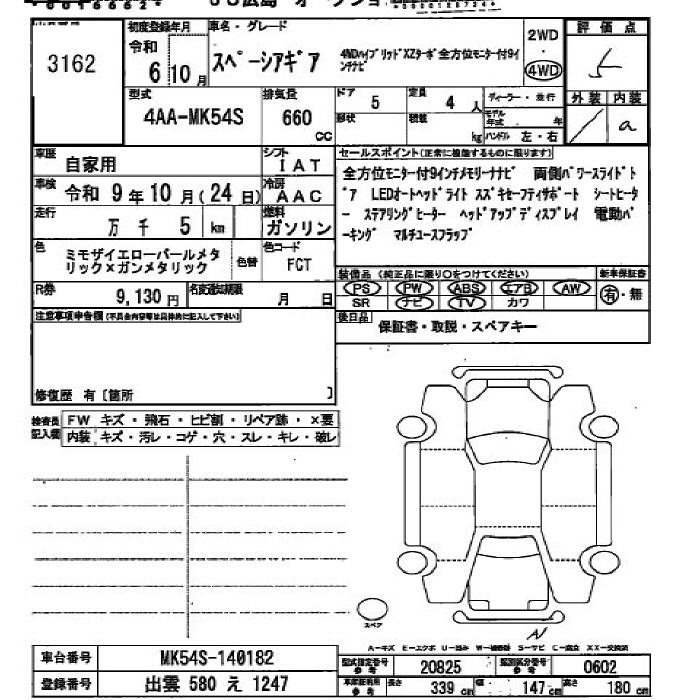 広島 オークショ
初度登録年月 車名・グレード
3162 令和 6 10月 スペーシアギア 4WDハイブリッドXZターボ 全方位モニター付9インチナビ 2WD 4WD 評価点 5
型式 4AA-MK54S 排気量 660 cc ドア 5 形状 定員 4 人 積載 kg ディーラー・並行 モデル年式 年 ハンドル 左・右 外装 内装 a
車歴 自家用 シフト IAT
車検 令和 9年10月(24日) 冷房 AAC
走行 万 千 5 km 燃料 ガソリン
色 ミモザイエローパールメタリック×ガンメタリック 色替 色コード FCT
R券 9,130 円 名変通知期限 月 日
セールスポイント(正常に機能するものに限ります)
全方位モニター付9インチメモリーナビ 両側パワースライドド
ア LEDオートヘッドライト スズキセーフティサポート シートヒータ
ー ステアリングヒーター ヘッドアップディスプレイ 電動パ
ーキング マルチユースフラップ
装備品(純正品に限り○をつけてください) 新車保証書
PS PW ABS エアB AW 有・無
SR ナビ TV カワ
後日品 保証書・取説・スペアキー
注意事項申告欄(不具合内容等は具体的に記入して下さい)
修復歴 有〔箇所 〕
検査員記入欄 FW キズ・飛石・ヒビ割・リペア跡・×要
内装 キズ・汚レ・コゲ・穴・スレ・キレ・破レ
スペア
A-キズ E-エクボ U-凹み W-補修跡 S-サビ C-腐食 XX-交換済
車台番号 MK54S-140182
登録番号 出雲 580 え 1247
型式指定番号参考 20825 類別区分番号参考 0602
車庫証明利用参考 長さ 339 cm 幅 147 cm 高さ 180 cm